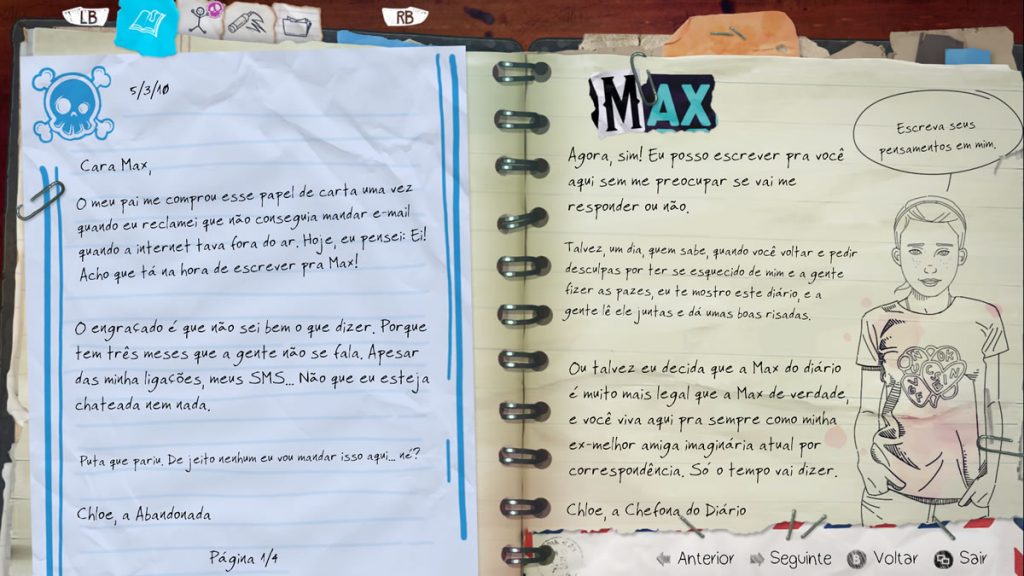 LB
RB
5/3/10
Cara Max,
O meu pai me comprou esse papel de carta uma vez
quando eu reclamei que não conseguia mandar e-mail
quando a internet tava fora do ar. Hoje, eu pensei: Ei!
Acho que tá na hora de escrever pra Max!
O engraçado é que não sei bem o que dizer. Porque
tem três meses que a gente não se fala. Apesar
das minha ligações, meus SMS... Não que eu esteja
chateada nem nada.
Puta que pariu. De jeito nenhum eu vou mandar isso aqui... né?
Chloe, a Abandonada
Página 1/4
MAX
Agora, sim! Eu posso escrever pra você
aqui sem me preocupar se vai me
responder ou não.
Talvez, um dia, quem sabe, quando você voltar e pedir
desculpas por ter se esquecido de mim e a gente
fizer as pazes, eu te mostro este diário, e a
gente lê ele juntas e dá umas boas risadas.
Ou talvez eu decida que a Max do diário
é muito mais legal que a Max de verdade,
e você viva aqui pra sempre como minha
ex-melhor amiga imaginária atual por
correspondência. Só o tempo vai dizer.
Chloe, a Chefona do Diário
Escreva seus
pensamentos em mim.
Anterior
Seguinte
B Voltar
Sair